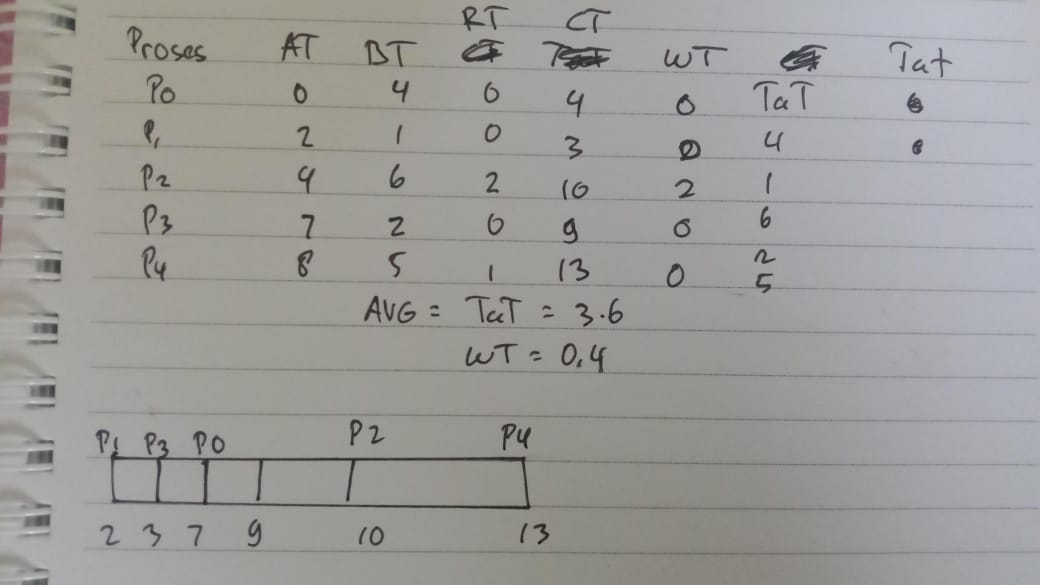 RT CT
Proses AT BT WT Tat
P0 0 4 0 4 0 TaT
P1 2 1 0 3 0 4
P2 4 6 2 10 2 1
P3 7 2 0 9 0 6
P4 8 5 1 13 0 2
5
AVG = TaT = 3.6
WT = 0.4
P1 P3 P0 P2 P4
2 3 7 9 10 13